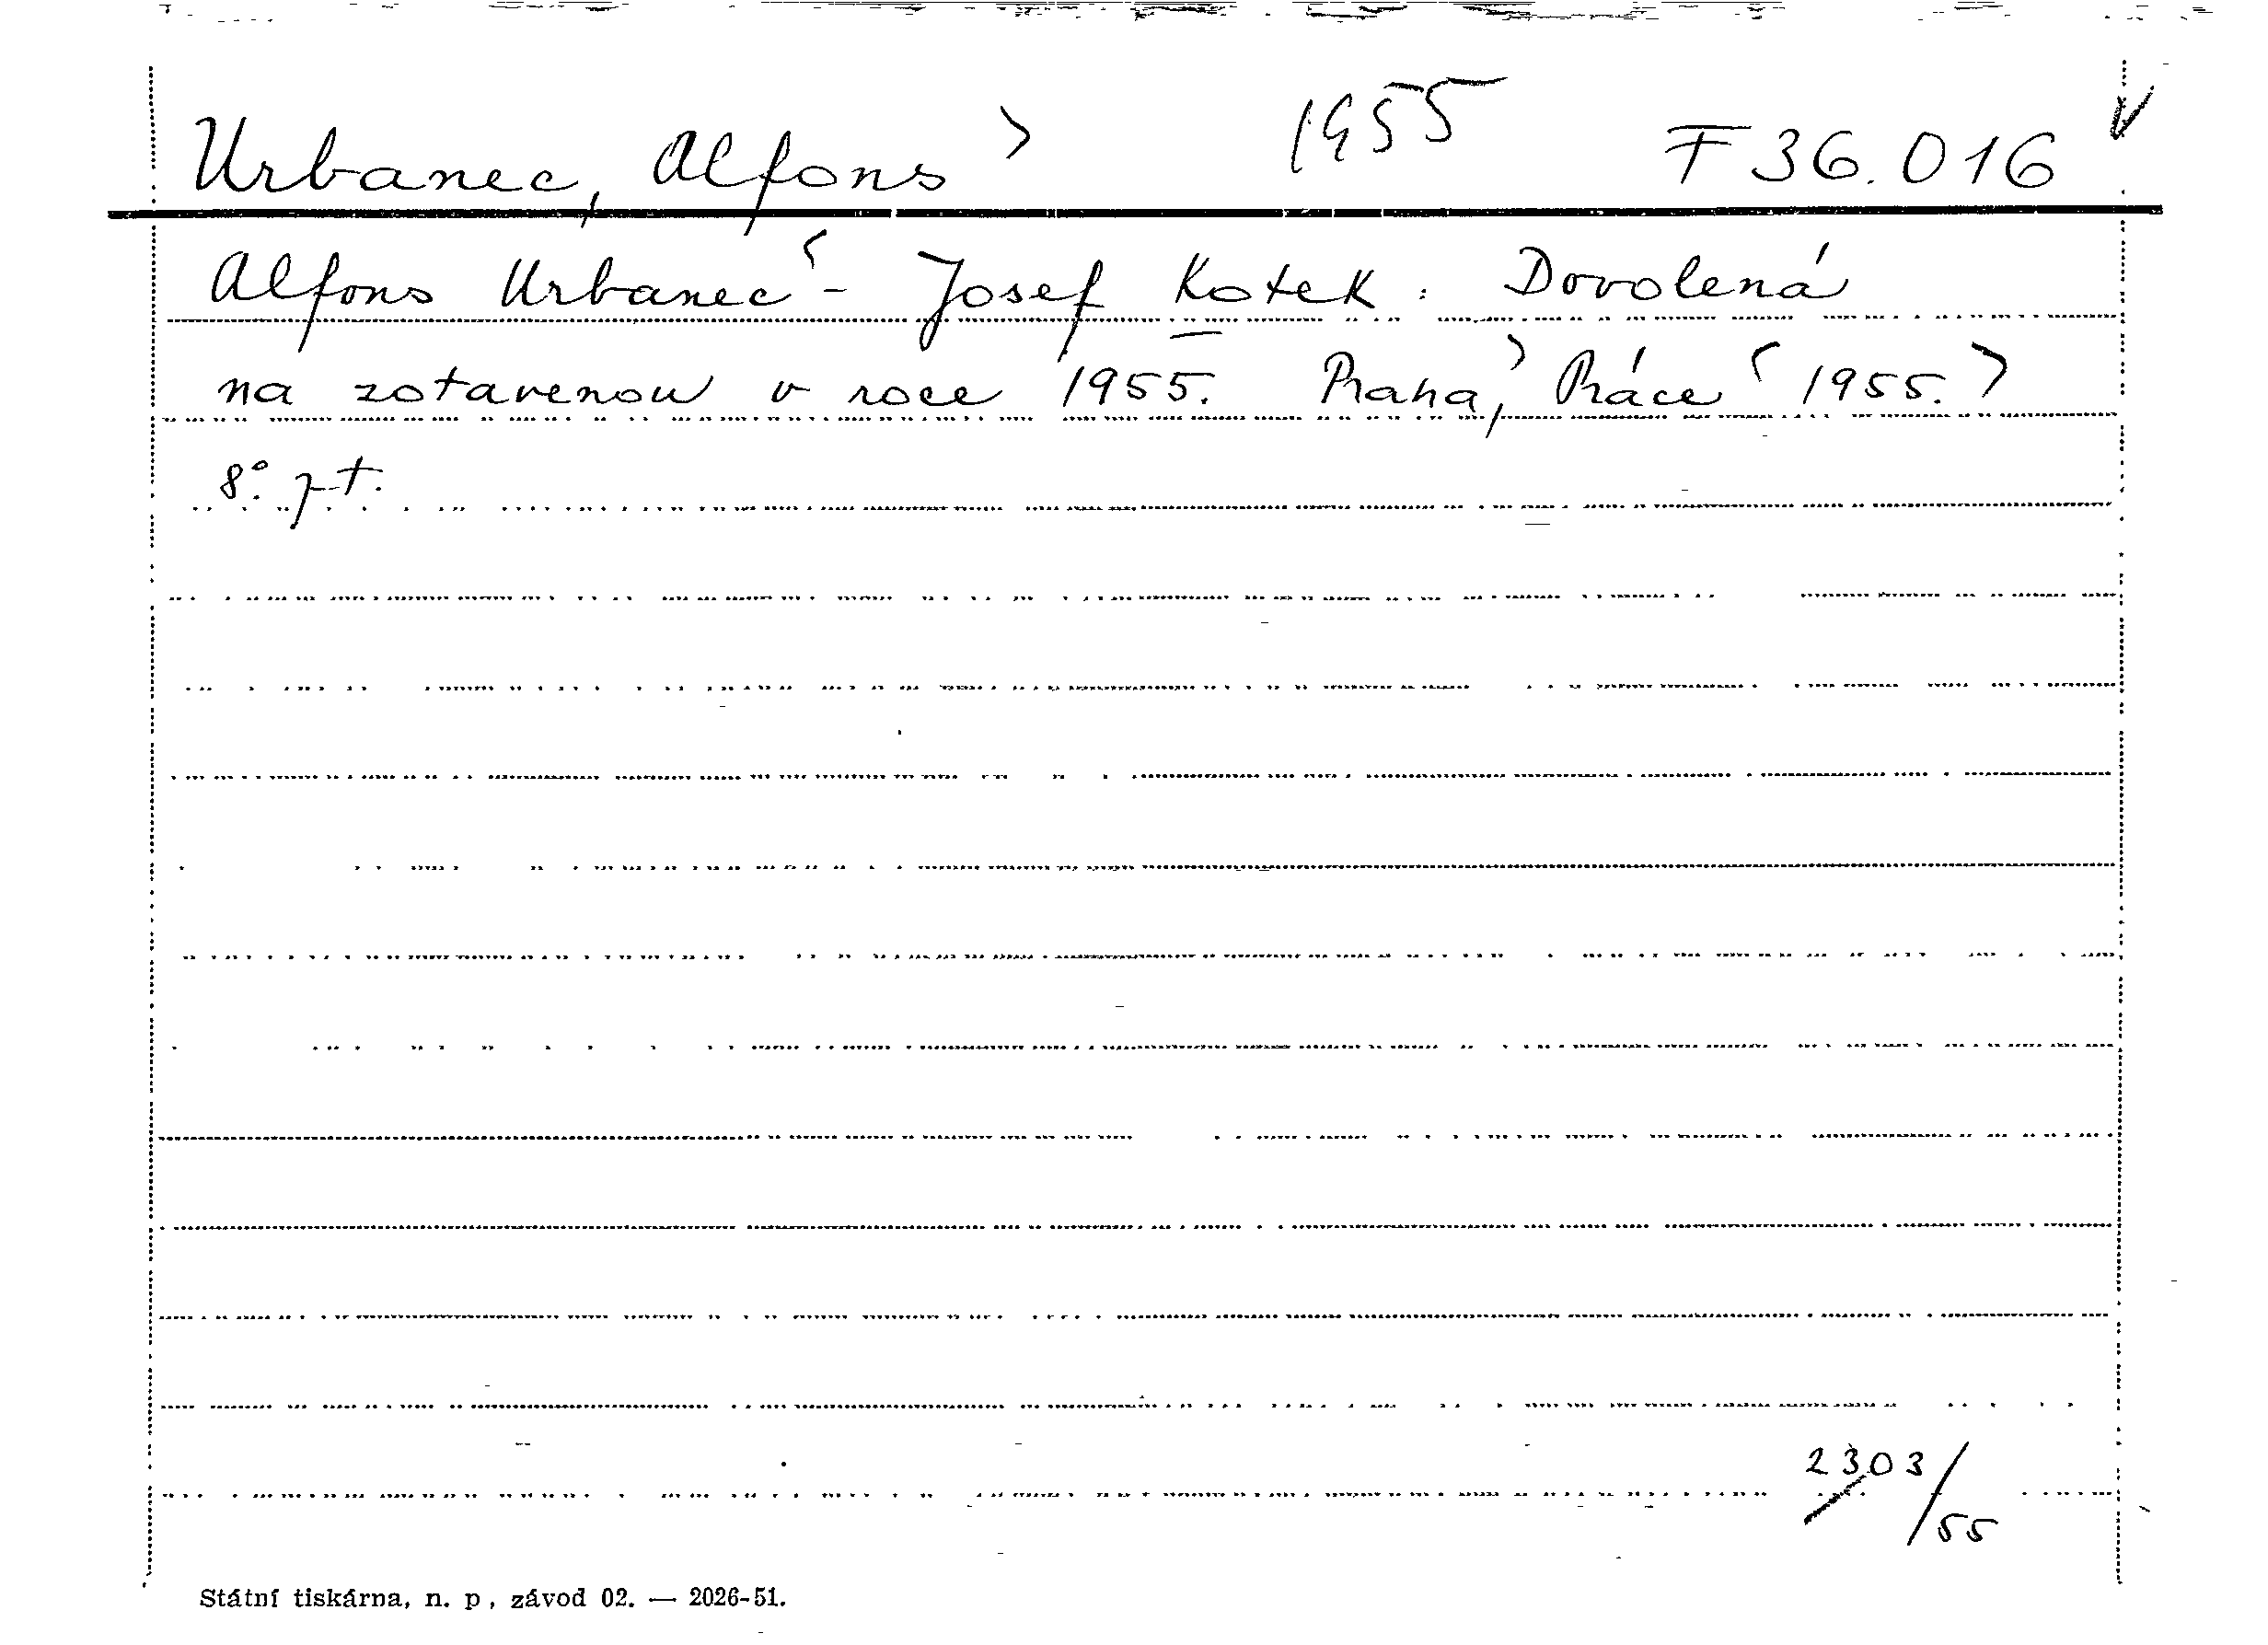 Urbanec, Alfons > 1955 F 36.016 V
Alfons Urbanec < - Josef Kotek : Dovolená
na zotavenou v roce 1955. Praha, > Práce < 1955. >
8°. pt.
2303/55
Státní tiskárna, n. p, závod 02. — 2026-51.